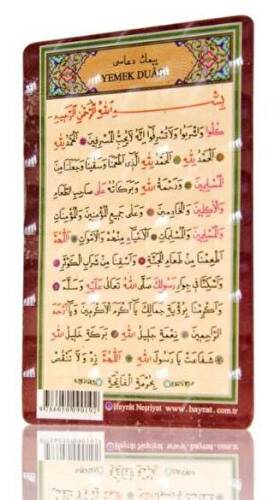 يمك دعاسى
YEMEK DUASI
بِسْمِ اللّٰهِ الرَّحْمٰنِ الرَّحِيمِ
كُلُوا وَاشْرَبُوا وَلَا تُسْرِفُوا اِنَّهُ لَا يُحِبُّ الْمُسْرِفِينَ ۞ اَلْحَمْدُ لِلّٰهِ
اَلْحَمْدُ لِلّٰهِ ۞ اَلْحَمْدُ لِلّٰهِ الَّذِى اَطْعَمَنَا وَسَقَينَا وَجَعَلَنَا مِنَ
الْمُسْلِمِينَ ۞ وَرَحْمَةُ اللّٰهِ وَبَرَكَاتُهُ عَلٰى صَاحِبِ الطَّعَامِ
وَالْاٰكِلِينَ وَالْخَادِمِينَ ۞ وَعَلٰى جَمِيعِ الْمُؤْمِنِينَ وَالْمُؤْمِنَاتِ
وَالْمُسْلِمِينَ وَالْمُسْلِمَاتِ اَلْاَحْيَاءِ مِنْهُمْ وَالْاَمْوَاتِ ۞ اَللّٰهُمَّ
اَطْعِمْنَا مِنْ طَعَامِ الْجَنَّةِ ۞ وَاَسْقِنَا مِنْ شَرَابِ الْكَوْثَرِ ۞
وَاَسْكِنَّا فِى جِوَارِ رَسُولِكَ صَلَّى اللّٰهُ تَعَالٰى عَلَيْهِ وَسَلَّمَ ۞
وَاَكْرِمْنَا بِرُؤْيَةِ جَمَالِكَ يَا اَكْرَمَ الْاَكْرَمِينَ وَيَا اَرْحَمَ
الرَّاحِمِينَ ۞ نِعْمَةِ جَلِيلُ اللّٰهِ ۞ بَرَكَةِ خَلِيلُ اللّٰهِ
شَفَاعَتْ يَا رَسُولَ اللّٰهِ ۞ اَللّٰهُمَّ زِدْ وَلَا تَنْقُصْ
بِحُرْمَةِ الْفَاتِحَةِ
Hayrât Neşriyat www.hayrat.com.tr